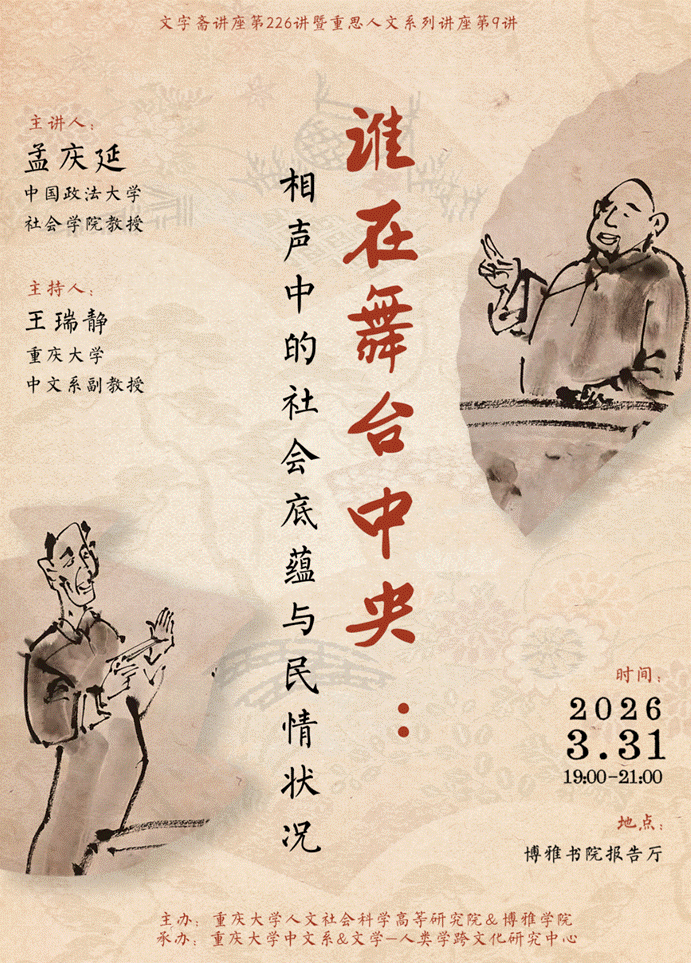 文字斋讲座第226讲暨重思人文系列讲座第9讲
主讲人：
孟庆延
中国政法大学
社会学院教授
主持人：
王瑞静
重庆大学
中文系副教授
谁在舞台中央：
相声中的社会底蕴与民情状况
时间：
2026
3.31
19:00-21:00
地点：
博雅书院报告厅
主办：重庆大学人文社会科学高等研究院&博雅学院
承办：重庆大学中文系&文学-人类学跨文化研究中心